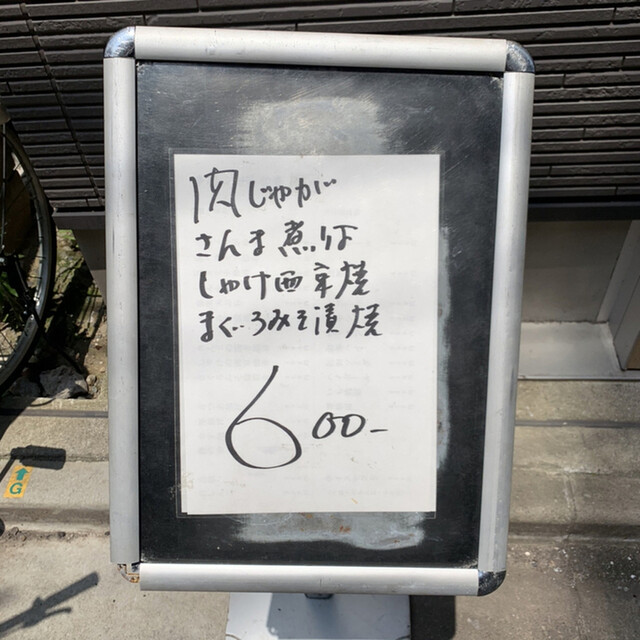 肉じゃが
さんま煮付
しゃけ西京焼
まぐろみそ漬焼
600-
G